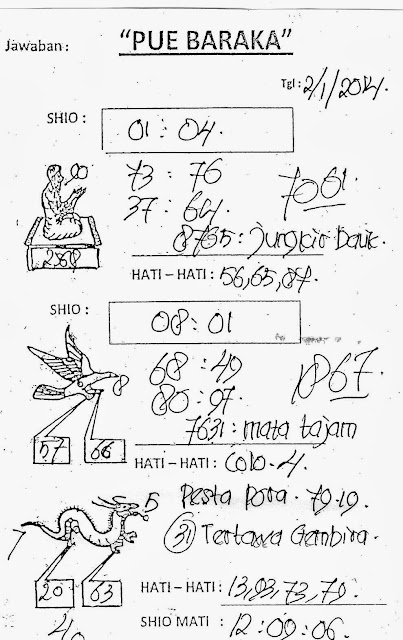 Jawaban : "PUE BARAKA"
Tgl : 2/1/2014.
SHIO : 01 : 04.
73 : 76
37 : 64.
7061
8735 : Jungkir Bauk.
HATI – HATI : 56,65,87.
SHIO : 08 : 01
8
68 : 49
80 : 97.
1867.
7631 : mata tajam
57 66
HATI – HATI : Colo. 4.
Pesta Pora. 79.19.
5
7
(31) Tertawa Gembira.
20 63
HATI – HATI : 13,93,73,79.
SHIO MATI : 12 : 09 : 06.